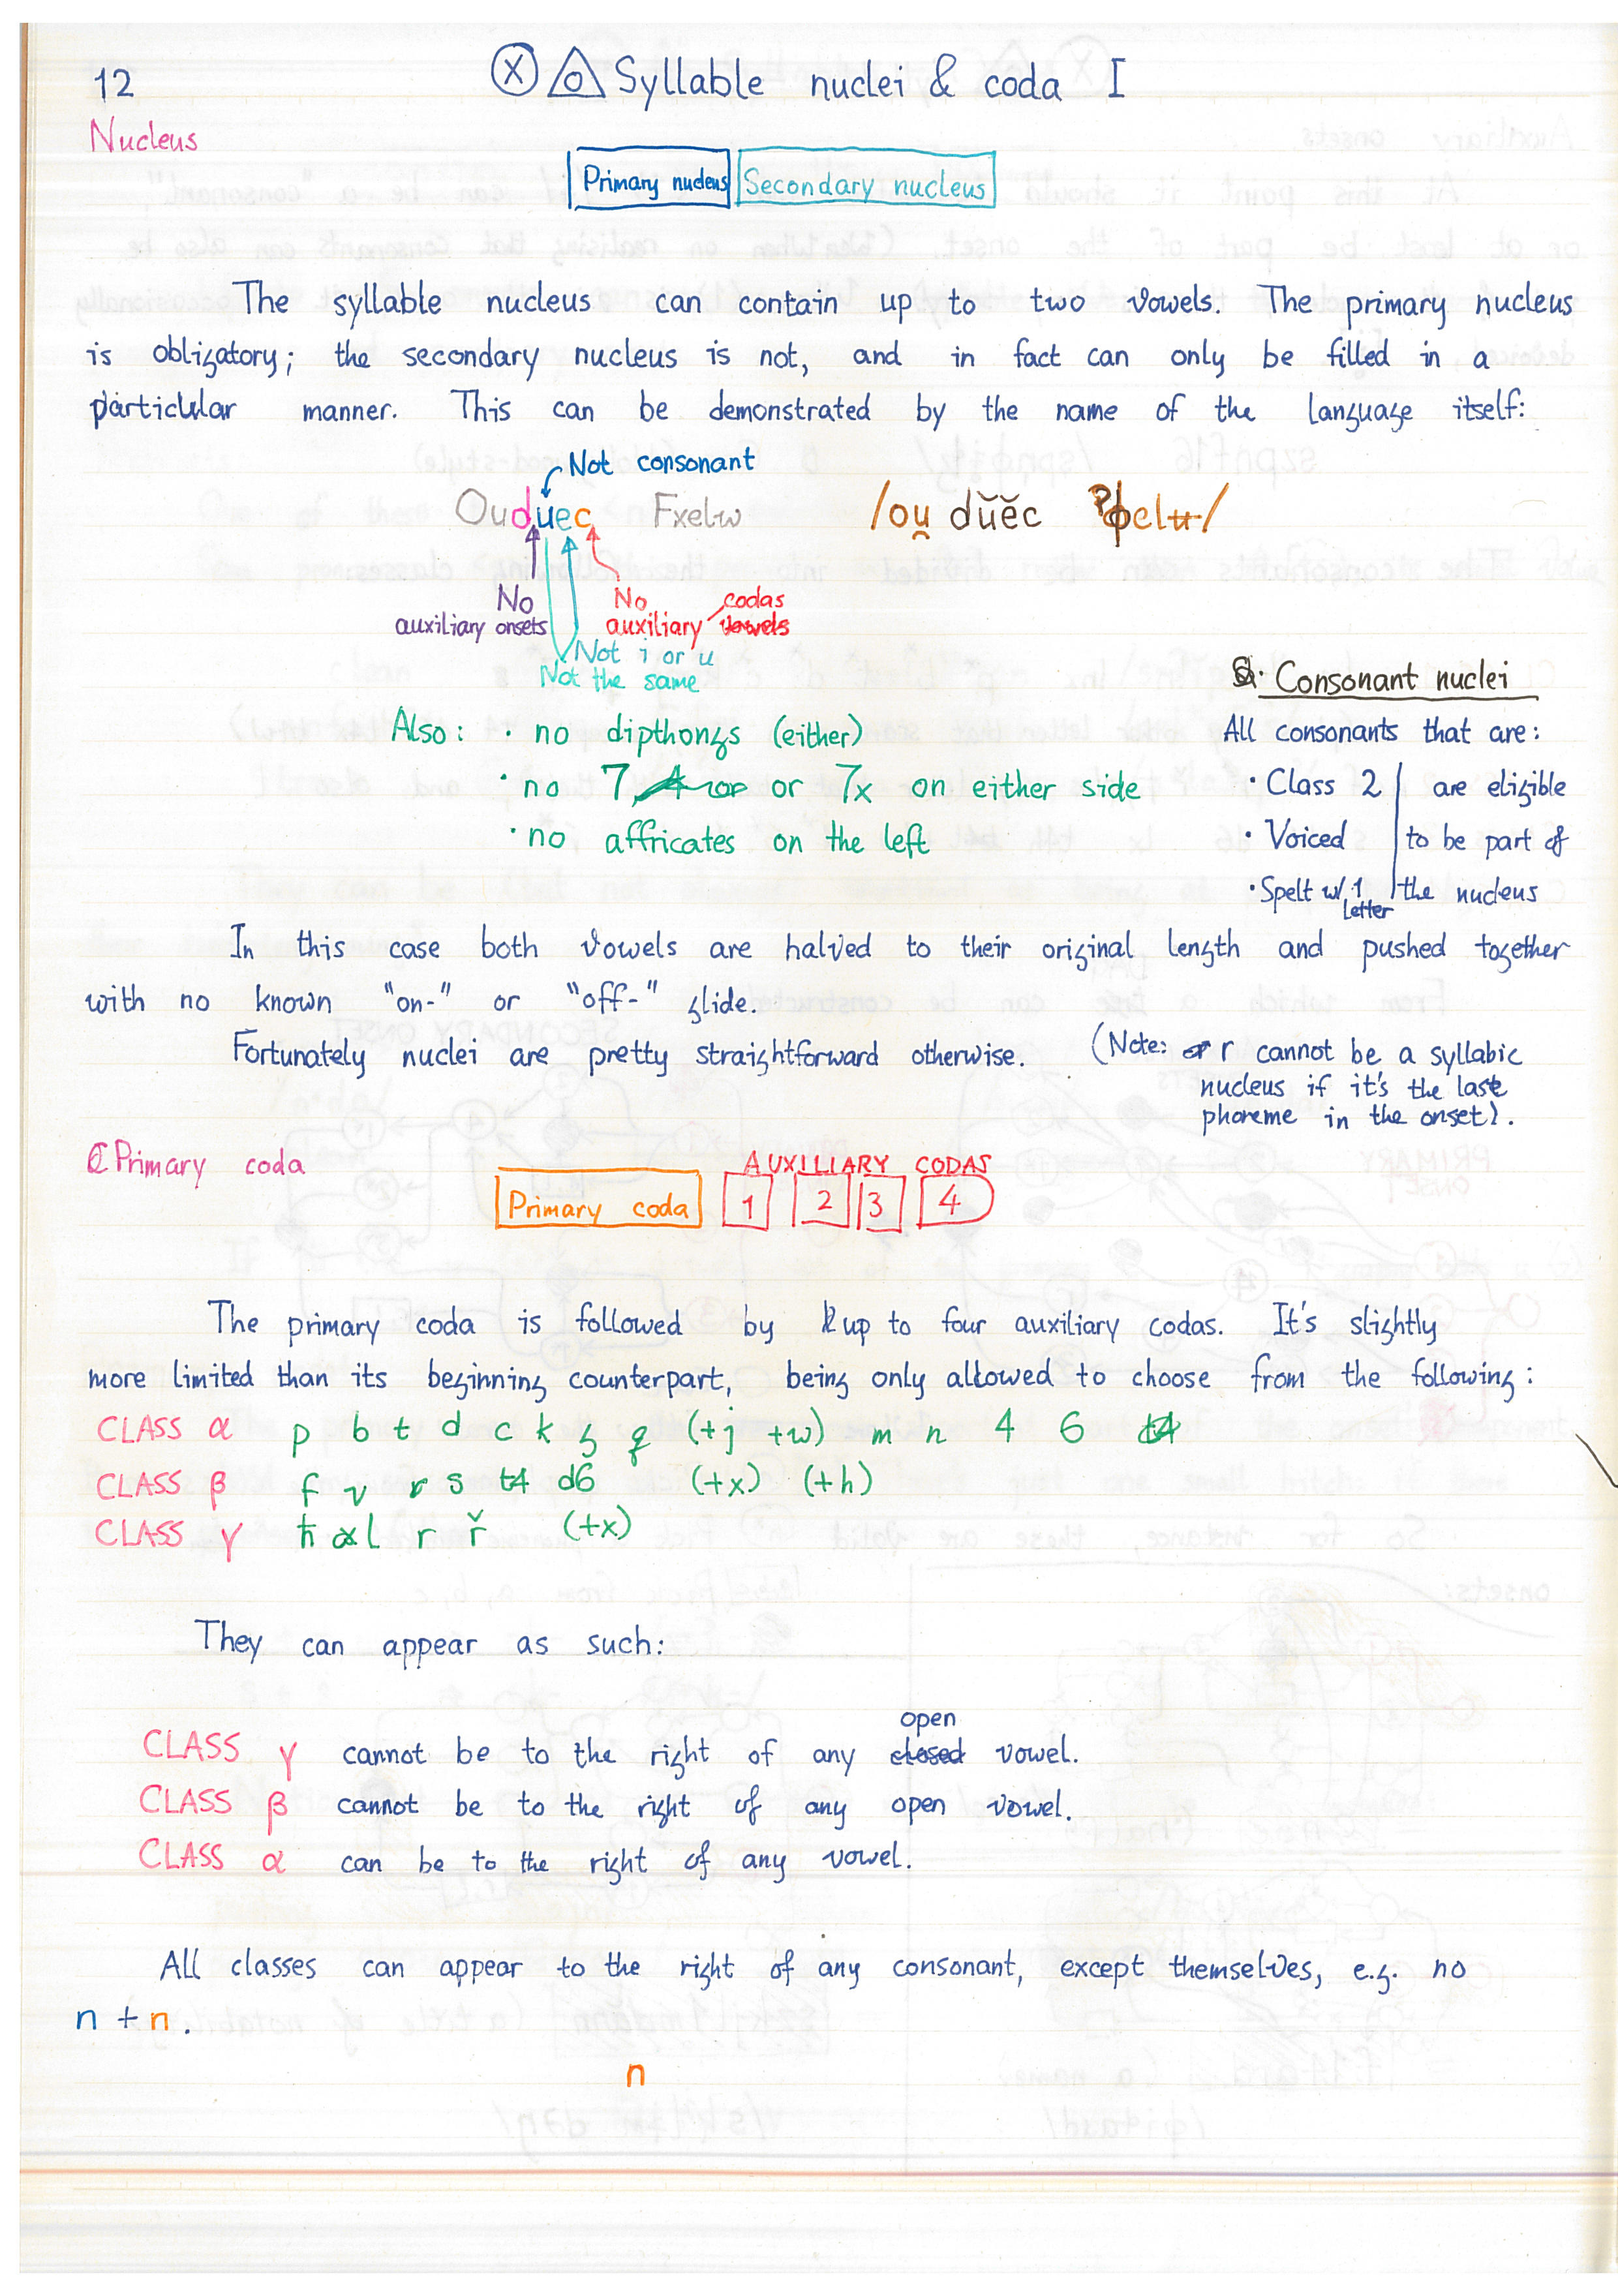 12
Ⓧ Syllable nuclei & coda I
Nucleus
Primary nucleus Secondary nucleus
The syllable nucleus can contain up to two vowels. The primary nucleus
is obligatory; the secondary nucleus is not, and in fact can only be filled in a
particular manner. This can be demonstrated by the name of the language itself:
Not consonant
Ouduec Fxelw /ou̯ dŭĕc
No
auxiliary onsets
No
auxiliary codas vowels
Not i or u
Not the same
Also: · no dipthongs (either)
· no 7, 4 or or 7x on either side
· no affricates on the left
Consonant nuclei
All consonants that are:
· Class 2
· Voiced
· Spelt w/ 1 letter
are eligible
to be part of
the nucleus
In this case both vowels are halved to their original length and pushed together
with no known "on-" or "off-" glide.
Fortunately nuclei are pretty straightforward otherwise.
(Note: r cannot be a syllabic
nucleus if it's the last
phoneme in the onset).
Primary coda
AUXILIARY CODAS
Primary coda 1 2 3 4
The primary coda is followed by up to four auxiliary codas. It's slightly
more limited than its beginning counterpart, being only allowed to choose from the following:
CLASS α p b t d c k g q (+j +w) m n 4 6 t4
CLASS β f v r s t4 d6 (+x) (+h)
CLASS γ ħ l r ř (+x)
They can appear as such:
CLASS γ cannot be to the right of any closed open vowel.
CLASS β cannot be to the right of any open vowel.
CLASS α can be to the right of any vowel.
All classes can appear to the right of any consonant, except themselves, e.g. no
n + n.
n